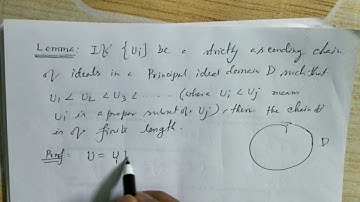 Lemma: If {Ui} be a strictly ascending chain
of ideals in a Principal ideal domain D such that
U1 < U2 < U3 < ..... (where Ui < Uj mean
Ui is a proper subset of Uj), then the chain
is of finite length.
D
Proof: U = U